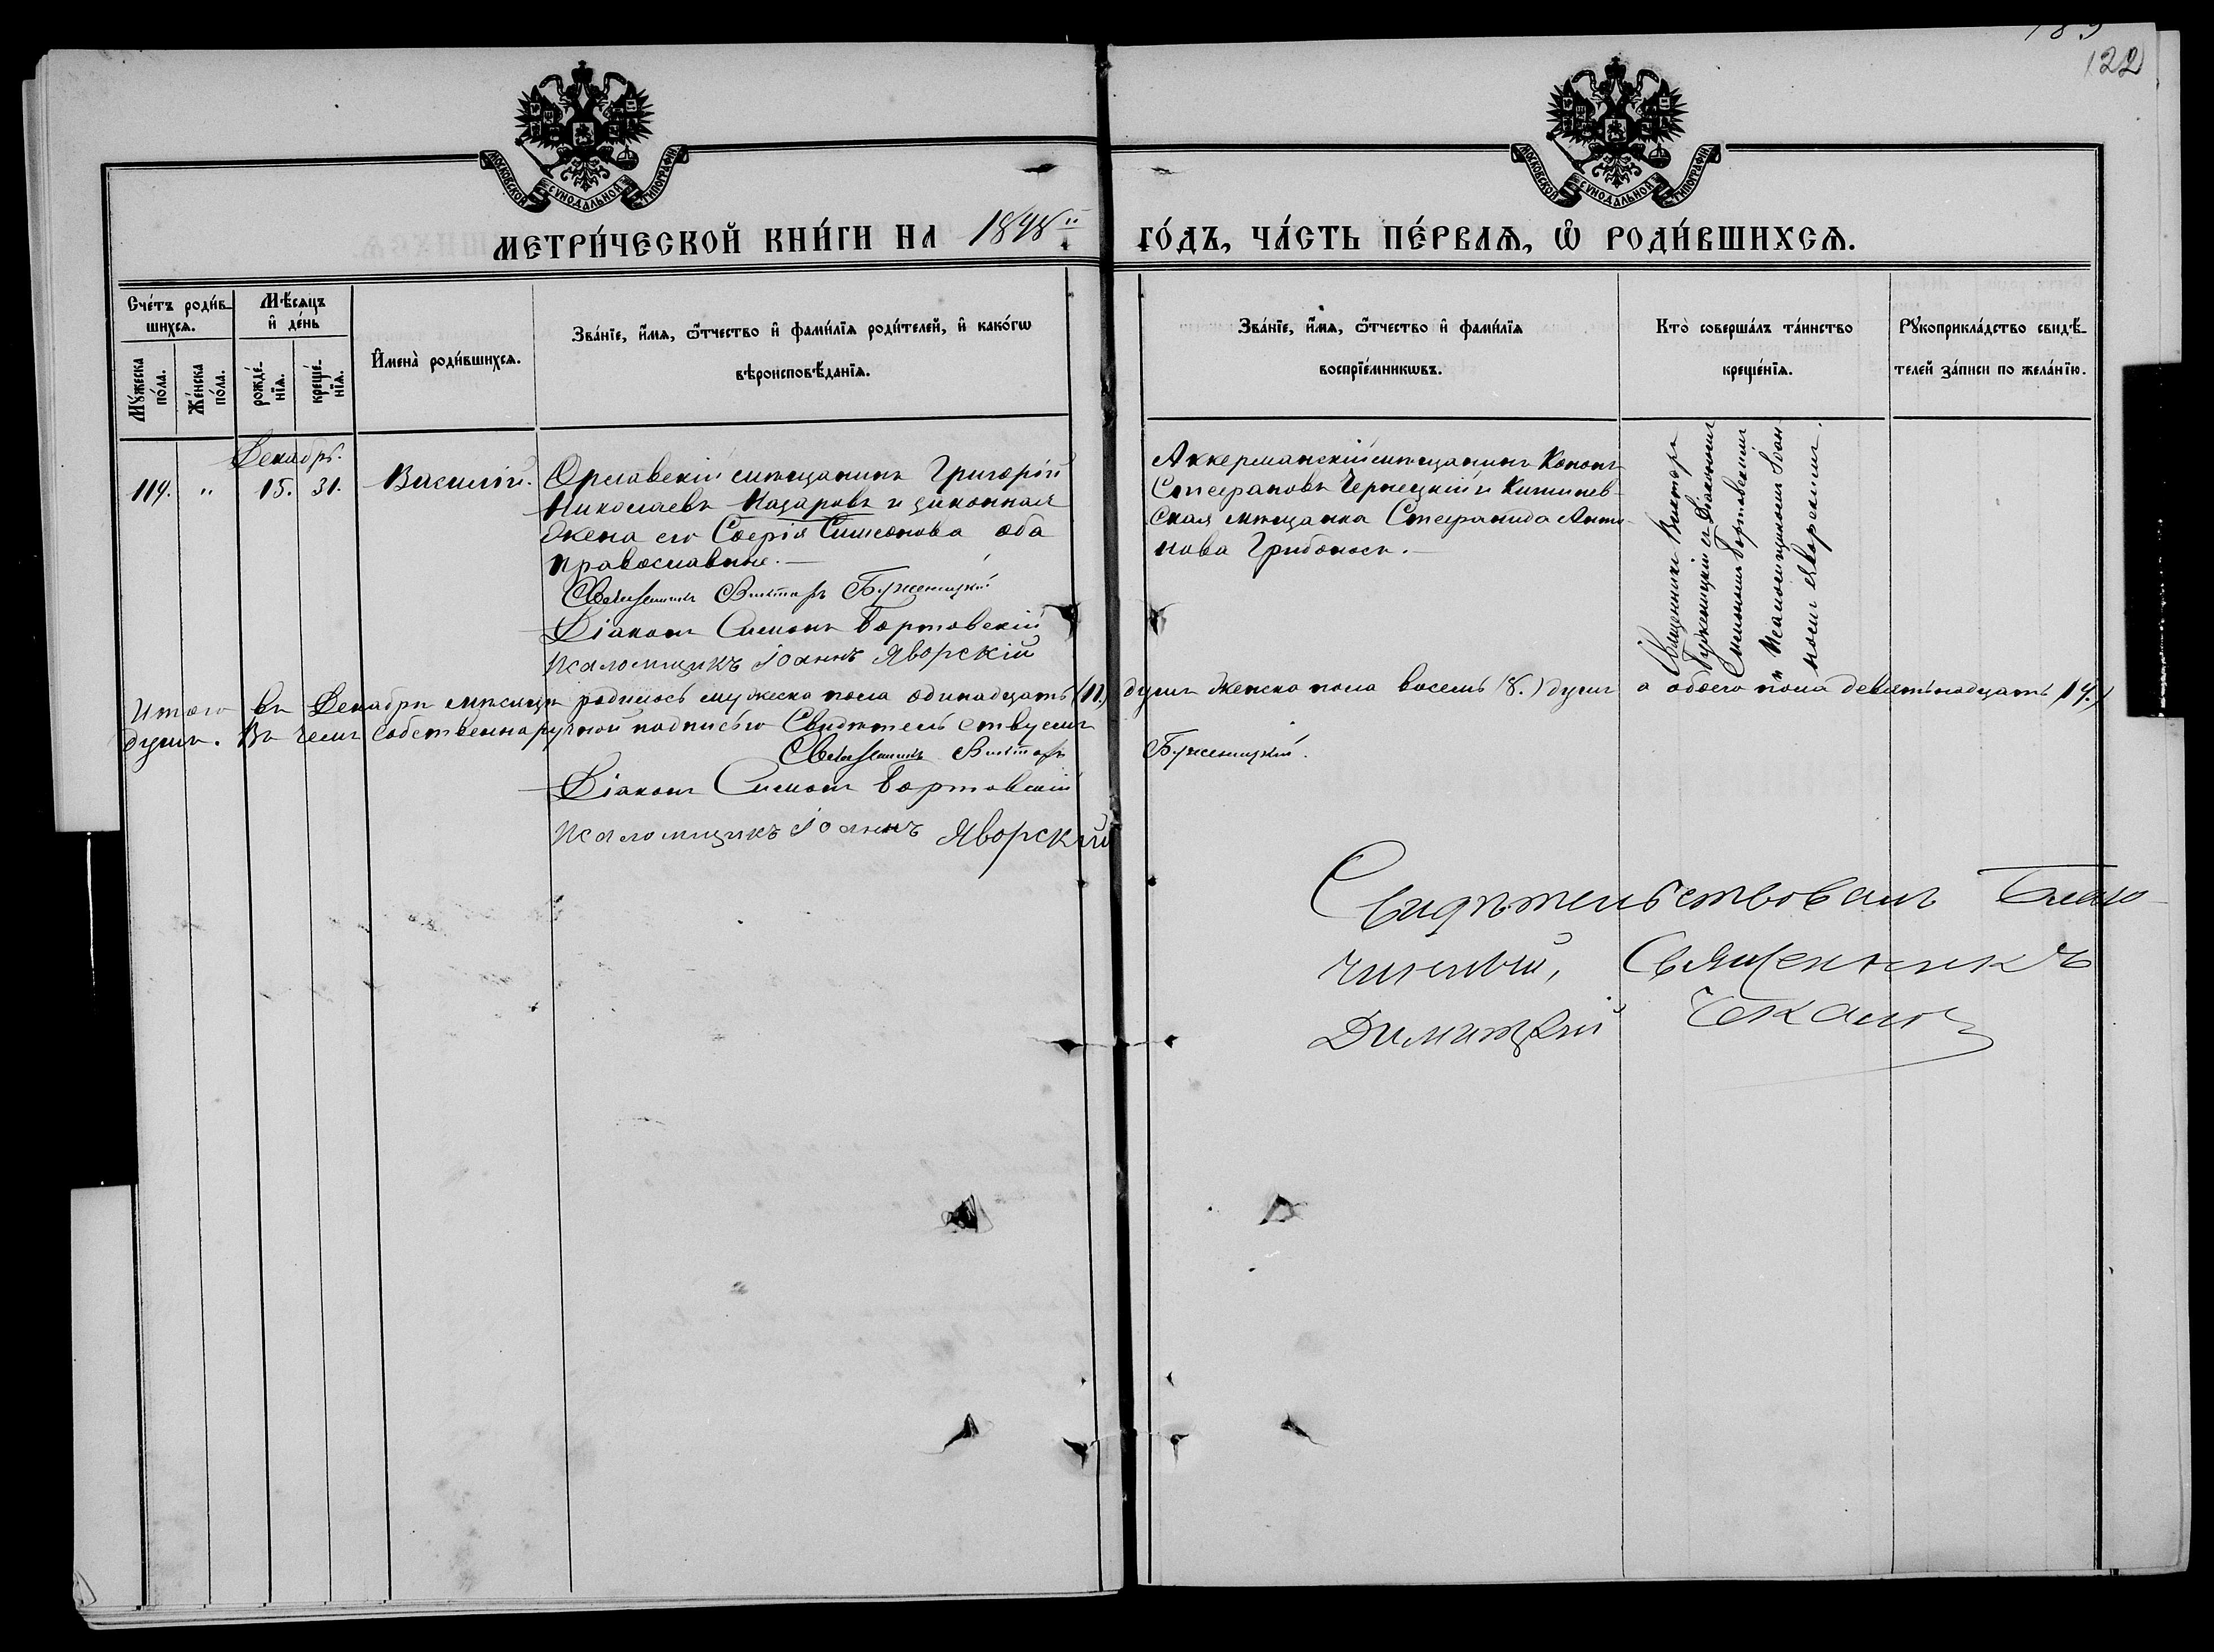 122
МОСКОВСКОЙ СѴНОДАЛЬНОЙ ТИПОГРАФІИ
МОСКОВСКОЙ СѴНОДАЛЬНОЙ ТИПОГРАФІИ
МЕТРИ́ЧЕСКОЙ КНИ́ГИ НА
ГО́ДЪ, ЧА́СТЬ ПЕ́РВАѦ, Ѡ҆ РОДИ́ВШИХСѦ.
Сче́тъ роди́в-
шихсѧ.
Мѣ́сѧцъ
и҆ де́нь
Мꙋ́жеска
по́ла.
Же́нска
по́ла.
рожде́-
нїѧ.
креще́-
нїѧ.
И҆мена̀ роди́вшихсѧ.
Зва́нїе, и҆́мѧ, ѻ҆́тчество и҆ фами́лїѧ роди́телей, и҆ како́гѡ
вѣроисповѣ́данїѧ.
Зва́нїе, и҆́мѧ, ѻ҆́тчество и҆ фами́лїѧ
воспрїе́мникѡвъ.
Кто̀ соверша́лъ та́инство
креще́нїѧ.
Рꙋкоприкла́дство свидѣ́-
телей за́писи по жела́нїю.
Декабрь.
119. " 15. 31. Василій.
Оргѣевскій мѣщанинъ Григорій
Николаевъ Назаровъ и законная
жена его Софія Симеонова оба
православные.—
Священникъ Викторъ Буженицкій
Діаконъ Симонъ Бортовскій
Псаломщикъ Іоаннъ Яворскій
Аккерманскій мѣщанинъ Кононъ
Стефановъ Чернецкій и Кишинев-
ская мѣщанка Стефанида Анто-
нова Грибоносъ.—
Священникъ Викторъ
Буженицкій съ Діакономъ
Симономъ Бортовскимъ
и Псаломщикомъ Іоан-
номъ Яворскимъ.
Итого въ Декабрѣ мѣсяцѣ родилось мужеска пола одинадцать (11.) душъ женска пола восемь (8.) душъ а обоего пола девятьнадцать (19.)
душъ. Въ чемъ собственноручной подписью Свидѣтельствуемъ
Священникъ Викторъ Буженицкій.
Діаконъ Симонъ Бортовскій
Псаломщикъ Іоаннъ Яворскій
Свидѣтельствовалъ Благо-
чинный, Священникъ
Димитрій Чекан